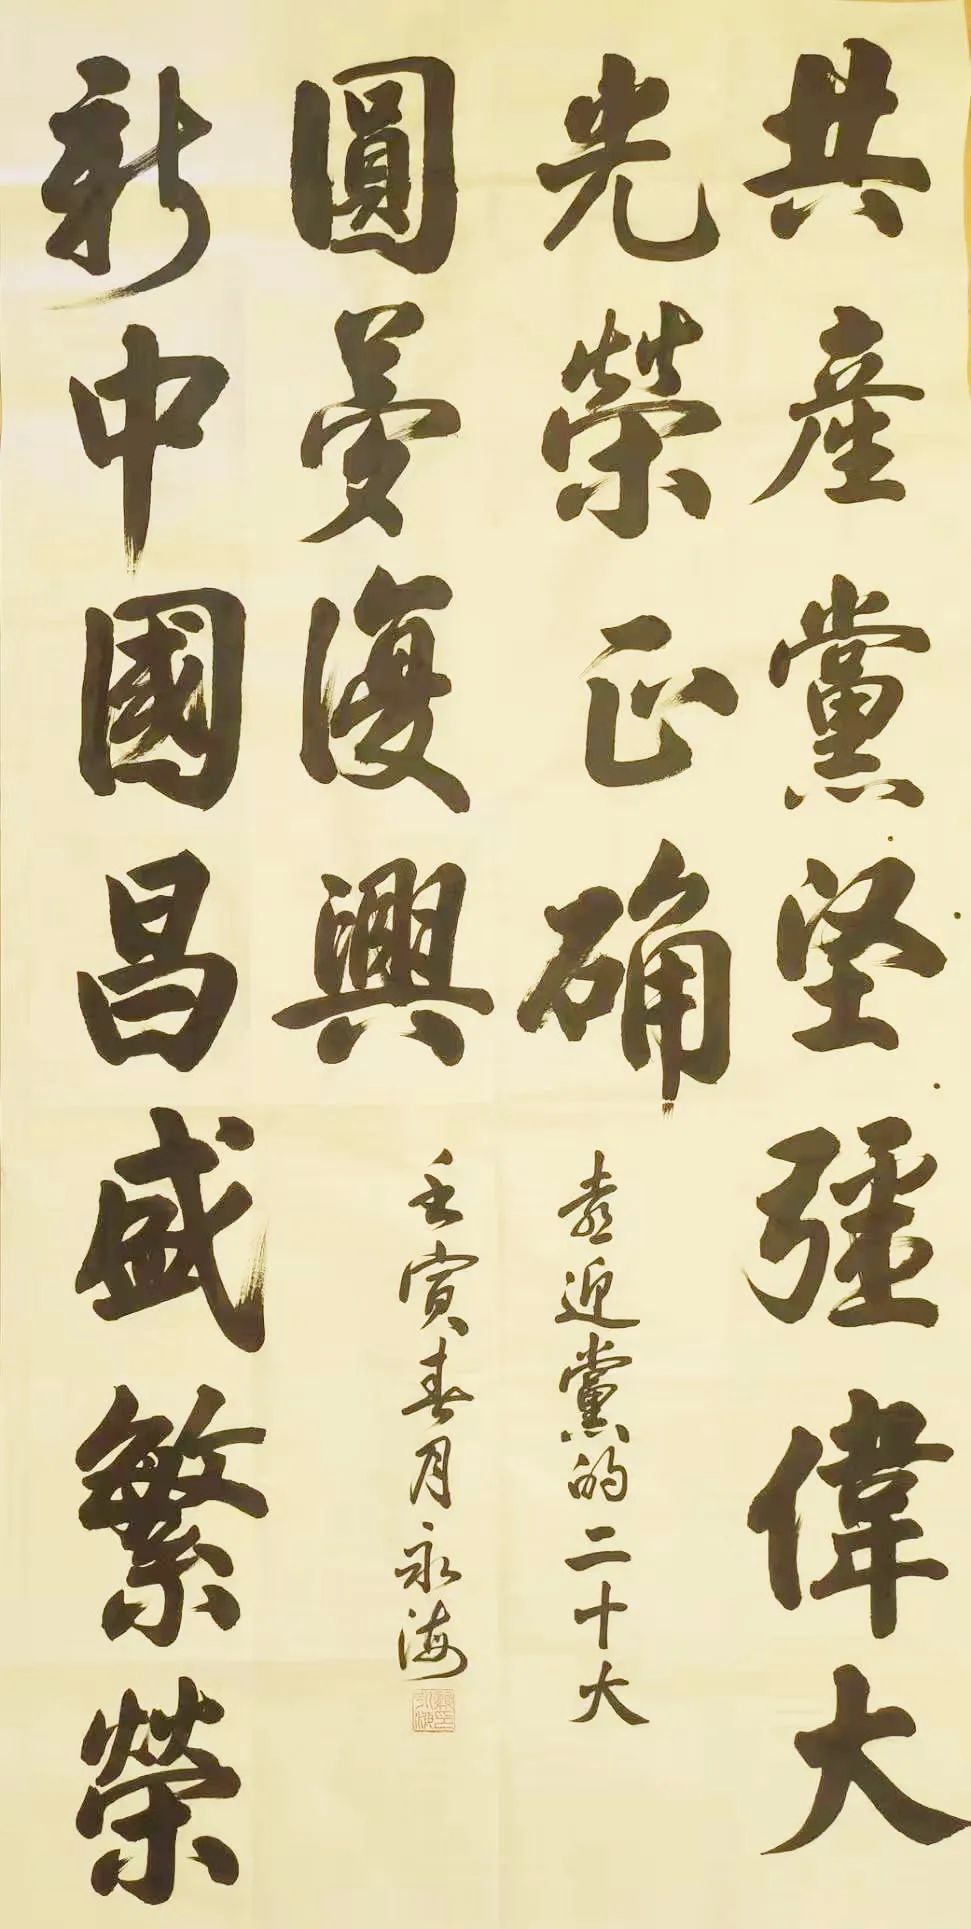 共產黨坚强偉大
光榮正确
喜迎黨的二十大
圓夢復興
壬寅春月永海
新中國昌盛繁榮